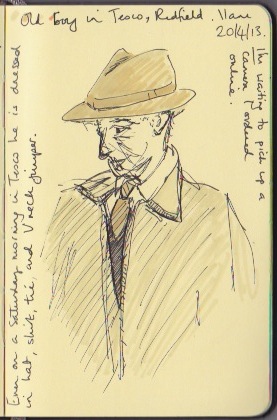 Old boy in Tesco, Redfield. 11am
20/4/13.
I'm waiting to pick up a
camera I ordered
online.
Even on a Saturday morning in Tesco he is dressed
in hat, shirt, tie, and V neck jumper.